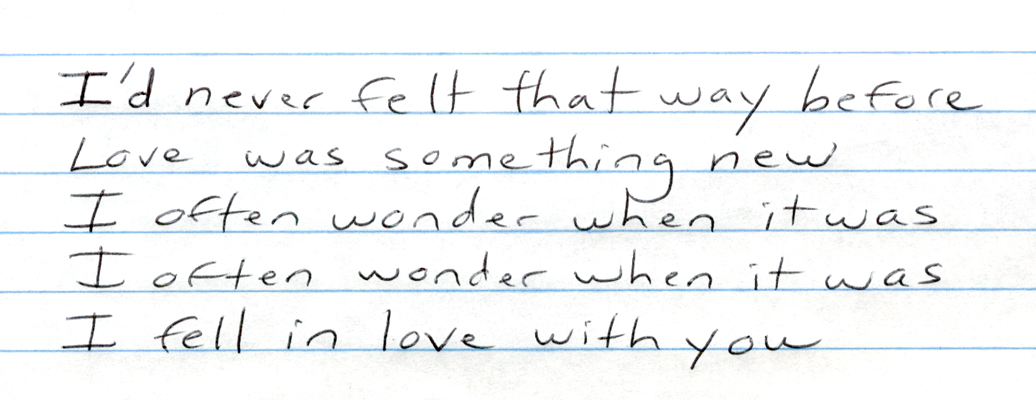 I'd never felt that way before
Love was something new
I often wonder when it was
I often wonder when it was
I fell in love with you